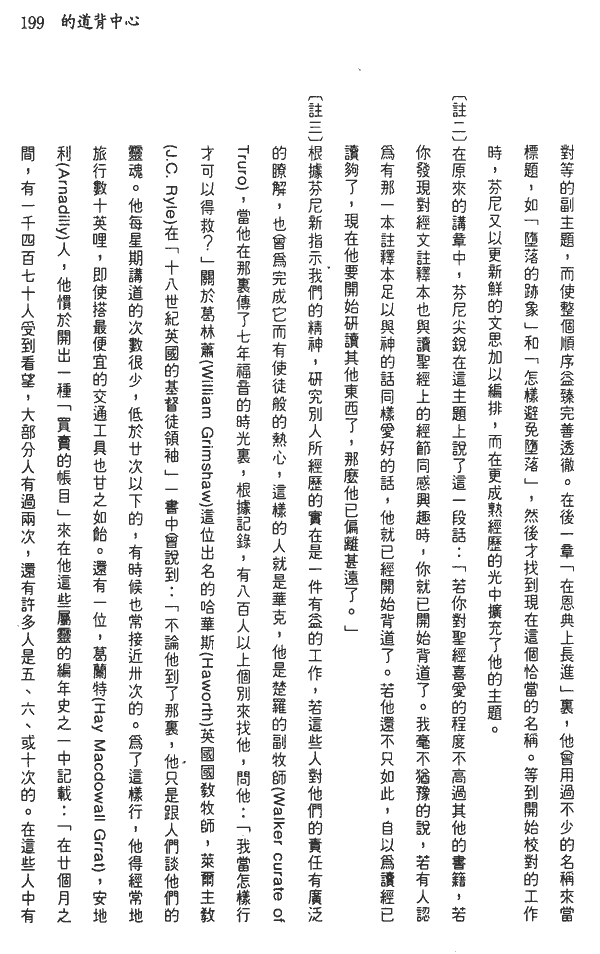 199 的道背中心
對等的副主題，而使整個順序益臻完善透徹。在後一章「在恩典上長進」裏，他曾用過不少的名稱來當
標題，如「墮落的跡象」和「怎樣避免墮落」，然後才找到現在這個恰當的名稱。等到開始校對的工作
時，芬尼又以更新鮮的文思加以編排，而在更成熟經歷的光中擴充了他的主題。
〔註二〕在原來的講章中，芬尼尖銳在這主題上說了這一段話：「若你對聖經喜愛的程度不高過其他的書籍，若
你發現對經文註釋本也與讀聖經上的經節同感興趣時，你就已開始背道了。我毫不猶豫的說，若有人認
爲有那一本註釋本足以與神的話同樣愛好的話，他就已經開始背道了。若他還不只如此，自以爲讀經已
讀夠了，現在他要開始研讀其他東西了，那麼他已偏離甚遠了。」
〔註三〕根據芬尼新指示我們的精神，研究別人所經歷的實在是一件有益的工作，若這些人對他們的責任有廣泛
的瞭解，也曾爲完成它而有使徒般的熱心，這樣的人就是華克，他是楚羅的副牧師(Walker curate of
Truro)，當他在那裏傳了七年福音的時光裏，根據記錄，有八百人以上個別來找他，問他：「我當怎樣行
才可以得救？」關於葛林蕭(William Grimshaw)這位出名的哈華斯(Haworth)英國國教牧師，萊爾主教
(J.C. Ryle)在「十八世紀英國的基督徒領袖」一書中曾說到：「不論他到了那裏，他只是跟人們談他們的
靈魂。他每星期講道的次數很少，低於廿次以下的，有時候也常接近卅次的。爲了這樣行，他得經常地
旅行數十英哩，即使搭最便宜的交通工具也甘之如飴。還有一位，葛蘭特(Hay Macdowall Grrat)，安地
利(Arnadilly)人，他慣於開出一種「買賣的帳目」來在他這些屬靈的編年史之一中記載：「在廿個月之
間，有一千四百七十人受到看望，大部分人有過兩次，還有許多人是五、六、或十次的。在這些人中有